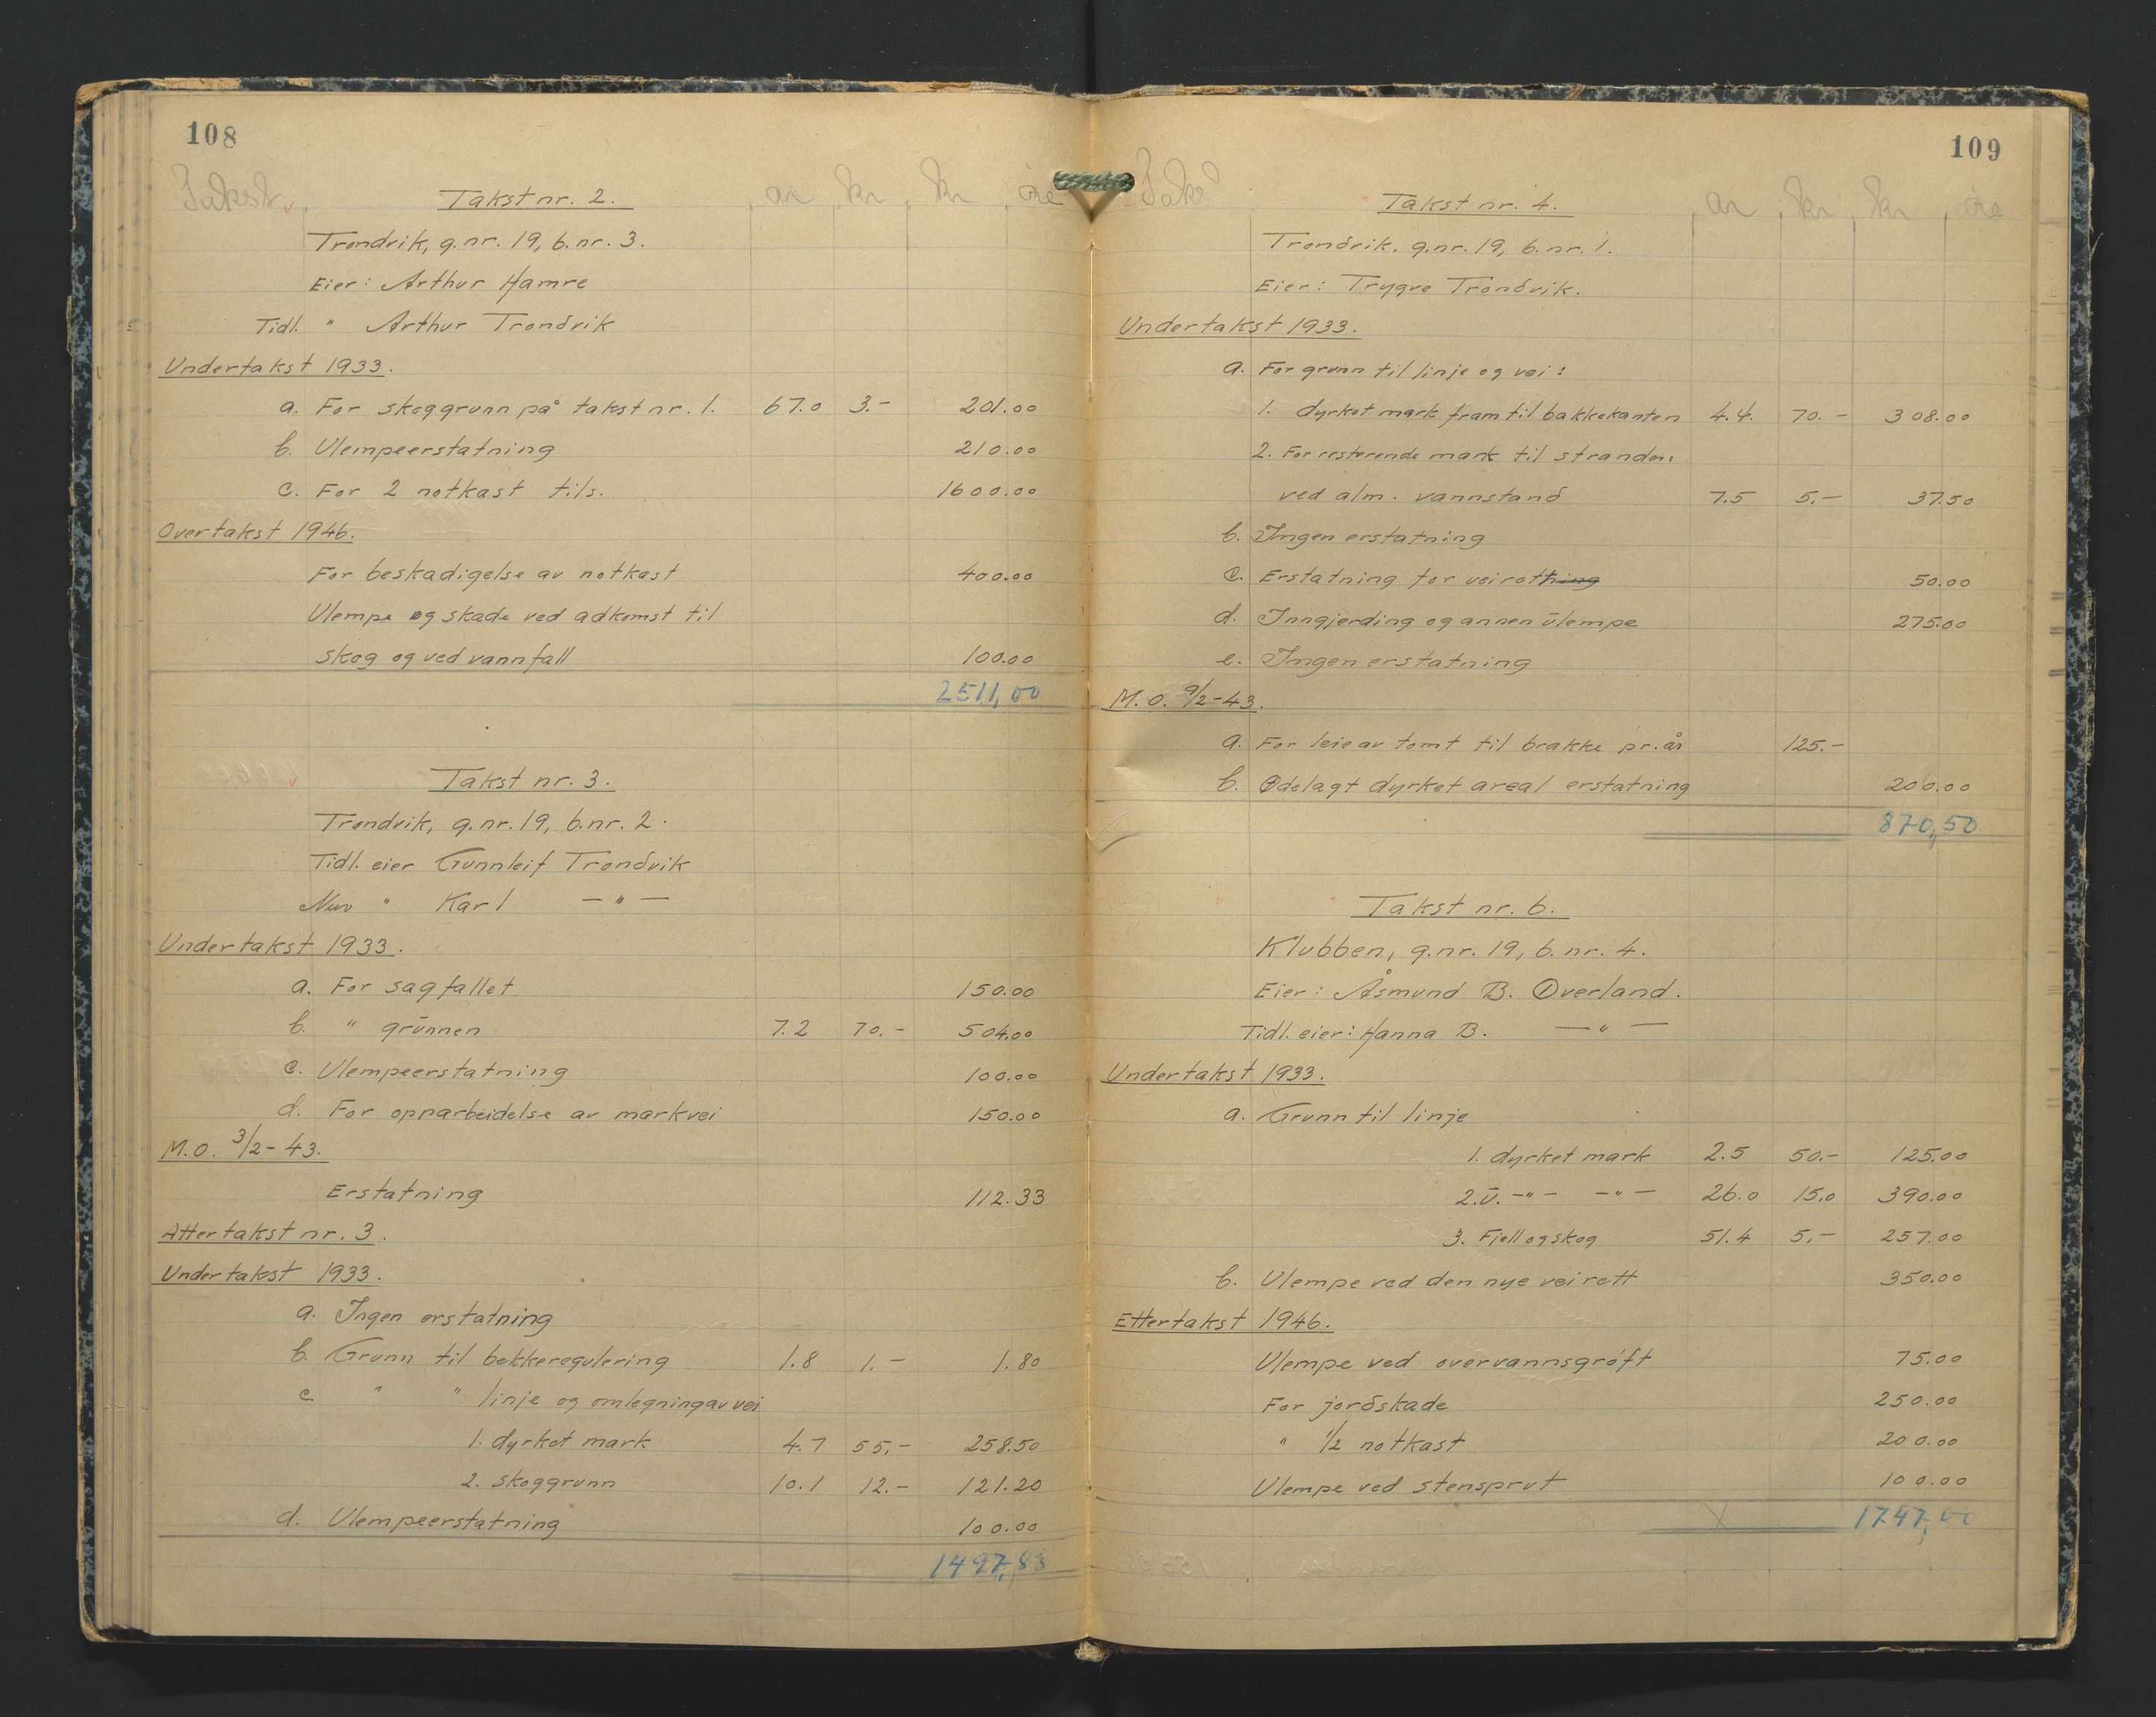 108
Takst ar kr kr øre
Takst nr. 2.
Trondvik, g.nr. 19, b.nr. 3.
Eier: Arthur Hamre
Tidl. " Arthur Trondvik
Undertakst 1933.
a. For skoggrunn på takst nr. 1. 67.0 3.- 201.00
b. Ulempeerstatning 210.00
c. For 2 notkast tils. 1600.00
Overtakst 1946.
For beskadigelse av notkast 400.00
Ulempe og skade ved adkomst til
skog og ved vannfall 100.00
2511,00
Takst nr. 3.
Trondvik, g.nr. 19, b.nr. 2.
Tidl. eier Gunnleif Trondvik
Nuv " Karl — " —
Undertakst 1933.
a. For sagfallet 150.00
b. " grunnen 7.2 70.- 504.00
c. Ulempeerstatning 100.00
d. For opparbeidelse av markvei 150.00
M.O. 3/2-43.
Erstatning 112.33
Attertakst nr. 3.
Undertakst 1933.
a. Ingen erstatning
b. Grunn til bekkeregulering 1.8 1.- 1.80
c " " linje og omlegning av vei
1. dyrket mark 4.7 55.- 258.50
2. skoggrunn 10.1 12.- 121.20
d. Ulempeerstatning 100.00
1497,83
109
Takst ar kr kr øre
Takst nr. 4.
Trondvik, g.nr. 19, b.nr. 1.
Eier: Trygve Trondvik.
Undertakst 1933.
a. For grunn til linje og vei:
1. dyrket mark fram til bakkekanten 4.4. 70.- 308.00
2. For resterende mark til stranden
ved alm. vannstand 7.5 5.- 37.50
b. Ingen erstatning
c. Erstatning for veirothing 50.00
d. Inngjerding og annen ulempe 275.00
e. Ingen erstatning
M.O. 9/2-43.
a. For leie av tomt til brakke pr. år 125.-
b. Ødelagt dyrket areal erstatning 200.00
870,50
Takst nr. 6.
Klubben, g.nr. 19, b.nr. 4.
Eier: Åsmund B. Øverland.
Tidl. eier: Hanna B. — " —
Undertakst 1933.
a. Grunn til linje
1. dyrket mark 2.5 50.- 125.00
2. u. -"- -"- 26.0 15.0 390.00
3. Fjell og skog 51.4 5.- 257.00
b. Ulempe ved den nye veirett 350.00
Ettertakst 1946.
Ulempe ved overvannsgrøft 75.00
For jordskade 250.00
" 1/2 notkast 200.00
Ulempe ved stensprut 100.00
X 1747,00